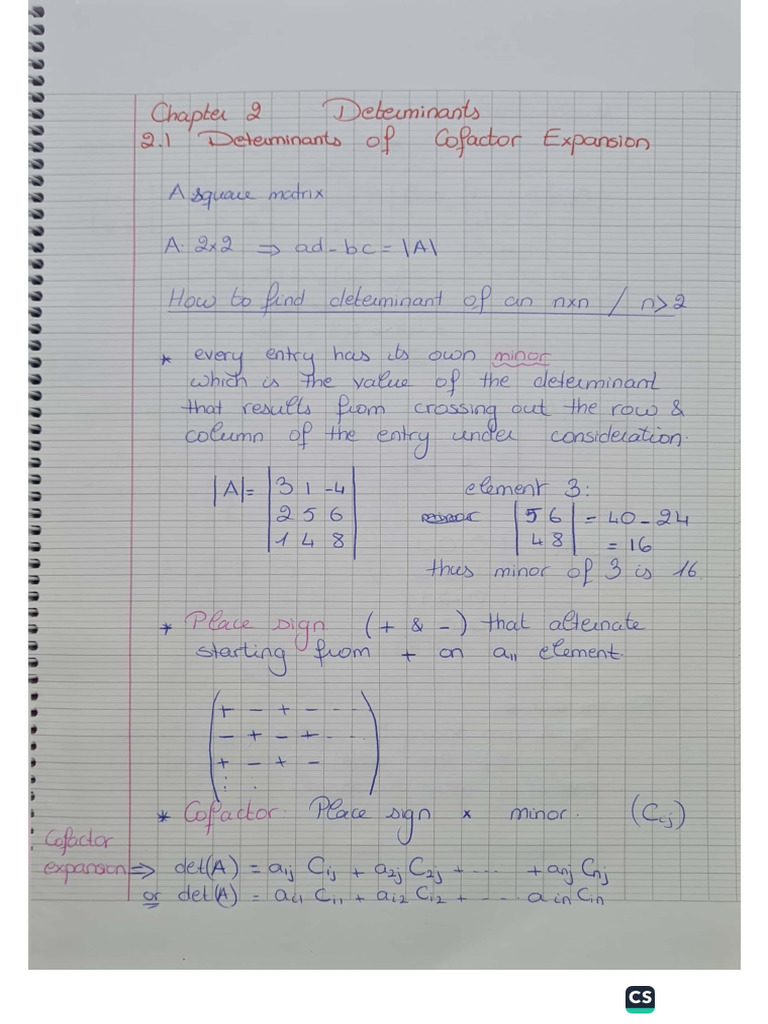 Chapter 2 Determinants
2.1 Determinants of Cofactor Expansion
A square matrix
A: 2x2 ⇒ ad - bc = |A|
How to find determinant of an nxn / n>2
* every entry has its own minor
which is the value of the determinant
that results from crossing out the row &
column of the entry under consideration.
|A| = | 3 1 -4 |
| 2 5 6 |
| 1 4 8 |
element 3:
| 5 6 | = 40 - 24
| 4 8 | = 16
thus minor of 3 is 16.
* Place sign (+ & -) that alternate
starting from + on a₁₁ element.
+ - + - - -
- + - + - - -
+ - + -
⋮ ⋮
* Cofactor: Place sign x minor. (Cij)
Cofactor
expansion ⇒ det(A) = aij Cij + a2j C2j + ---- + anj Cnj
or det(A) = ai1 Ci1 + ai2 Ci2 + ---- ain Cin
CS